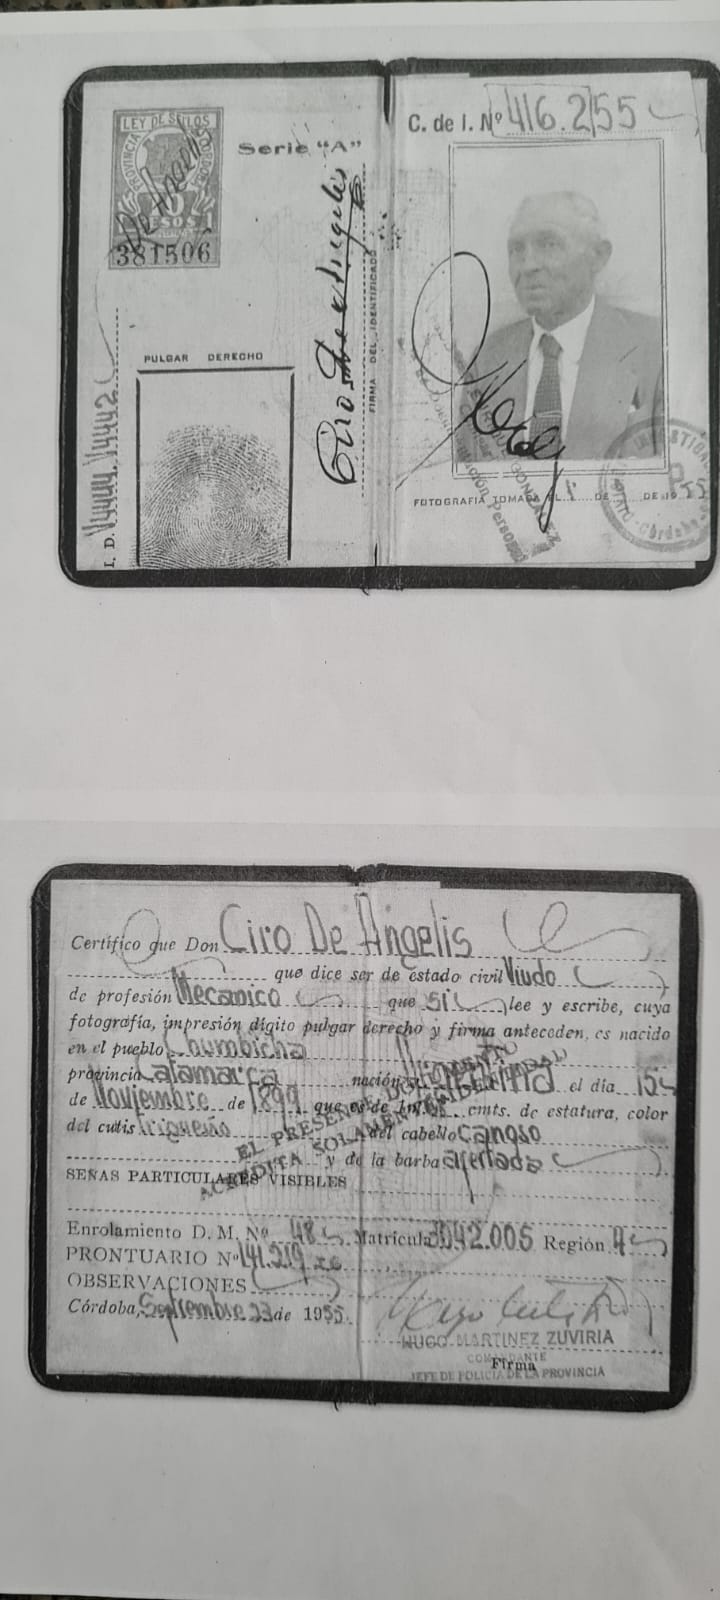 LEY DE SELLOS
PROVINCIA
CORDOBA
De Angelis
PESOS
381506
Serie "A"
PULGAR DERECHO
I. D.
Ciro De Angelis
FIRMA DEL IDENTIFICADO
C. de I. Nº 416.255
FOTOGRAFIA TOMADA EL DE DE 1955
Personal
Córdoba
Certifico que Don Ciro De Angelis
que dice ser de estado civil Viudo
de profesión Mecanico que si lee y escribe, cuya
fotografía, impresión dígito pulgar derecho y firma anteceden, es nacido
en el pueblo Chumbicha
provincia Catamarca nación el día 15
de Noviembre de 1899, que es de cmts. de estatura, color
del cutis trigueño del cabello canoso
y de la barba afeitada
EL PRESENTE DOCUMENTO
ACREDITA SOLAMENTE IDENTIDAD
SEÑAS PARTICULARES VISIBLES
Enrolamiento D. M. Nº 48 Matrícula 3042.005 Región 4
PRONTUARIO Nº 141.219
OBSERVACIONES
Córdoba, Septiembre 23 de 1955
HUGO MARTINEZ ZUVIRIA
COMANDANTE
Firma
JEFE DE POLICIA DE LA PROVINCIA